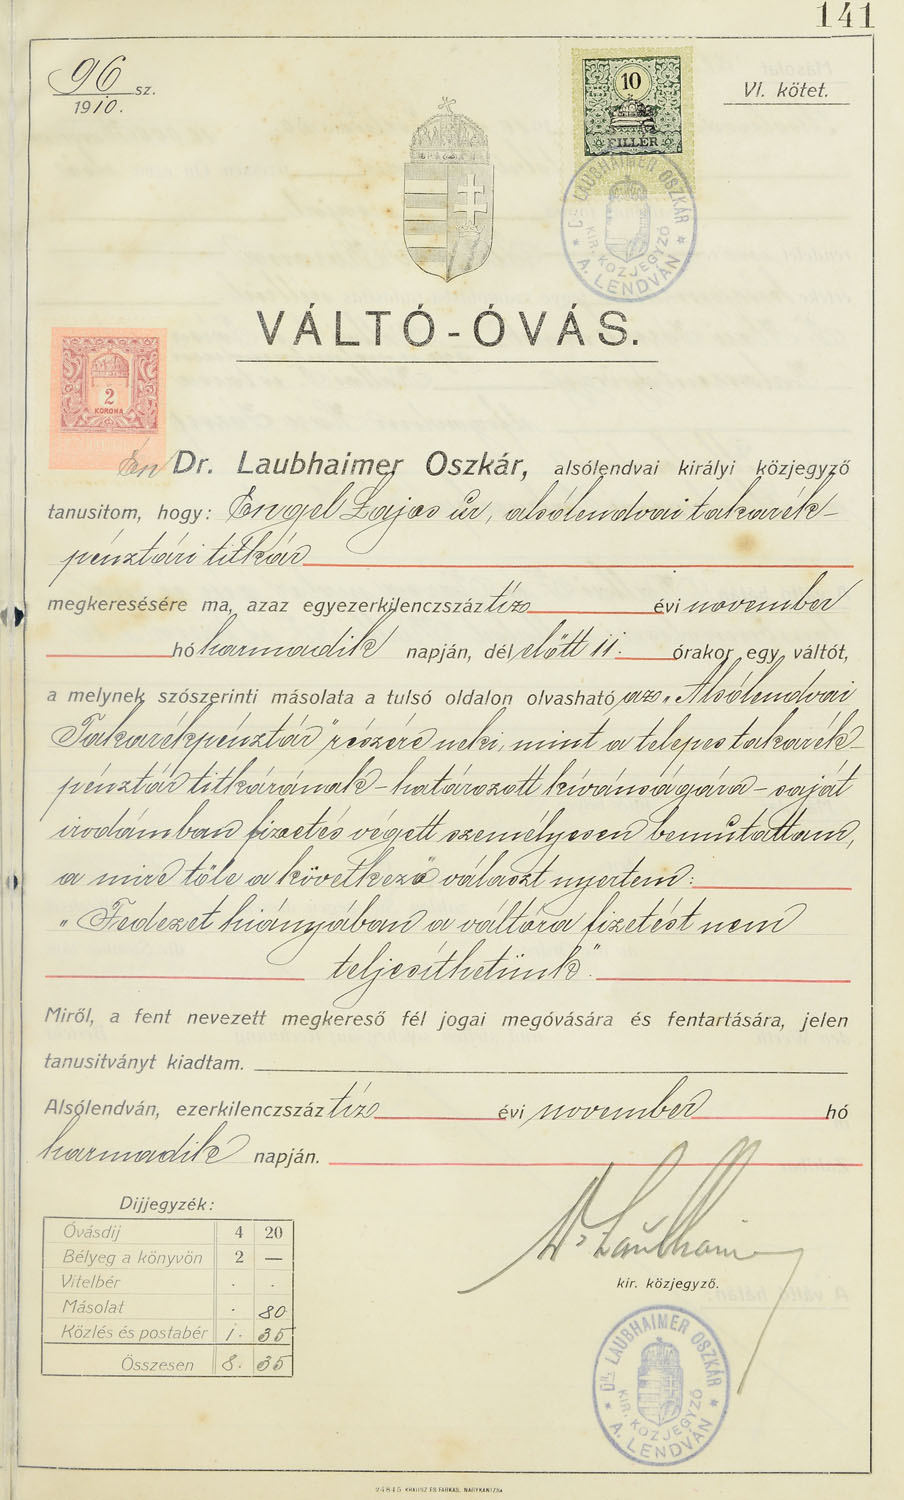 141
96 sz.
1910.
VI. kötet.
10
FILLÉR
Dr. LAUBHAIMER OSZKÁR
KIR. KÖZJEGYZŐ
* A. LENDVÁN *
VÁLTÓ-ÓVÁS.
2
KORONA
Én Dr. Laubhaimer Oszkár, alsólendvai királyi közjegyző
tanusitom, hogy: Engel Lajos úr, alsólendvai takarék-
pénztári titkár
megkeresésére ma, azaz egyezerkilenczszáz tíz évi november
hó harmadik napján, dél előtt 11. órakor egy váltót,
a melynek szószerinti másolata a tulsó oldalon olvasható az „Alsólendvai
Takarékpénztár" részére neki, mint a telepes takarék-
pénztár titkárának - határozott kívánságára - saját
irodámban fizetés végett személyesen bemutattam,
a mire tőle a következő választ nyertem:
„Fedezet hiányában a váltóra fizetést nem
teljesíthetünk".
Miről, a fent nevezett megkereső fél jogai megóvására és fentartására, jelen
tanusitványt kiadtam.
Alsólendván, ezerkilenczszáz tíz évi november hó
harmadik napján.
Dijjegyzék:
Óvásdij 4 20
Bélyeg a könyvön 2 —
Vitelbér . .
Másolat . 80
Közlés és postabér 1. 35
Összesen 8. 35
Dr Laubhaimer
kir. közjegyző.
Dr. LAUBHAIMER OSZKÁR
KIR. KÖZJEGYZŐ
* A. LENDVÁN *
24845 KRAUSZ ÉS FARKAS, NAGYKANIZSA